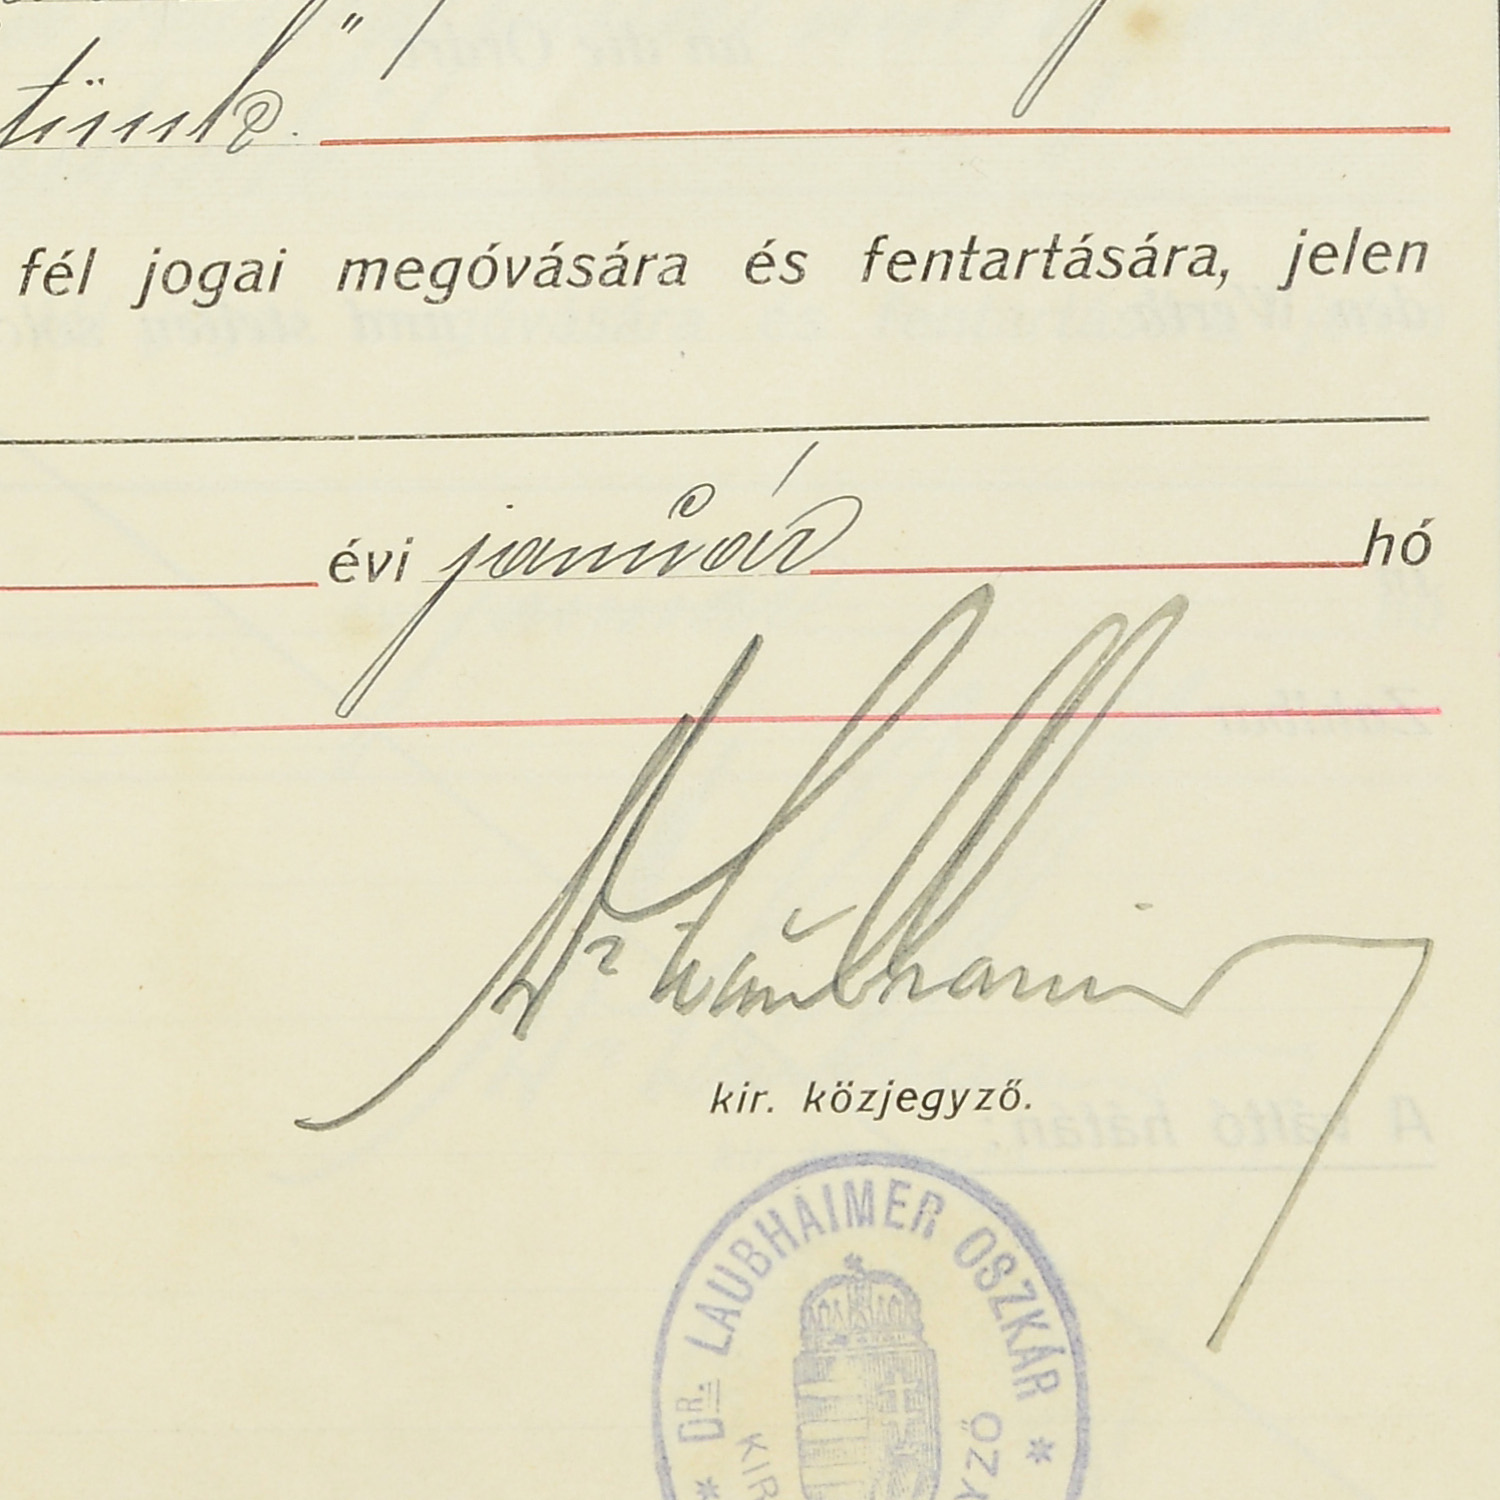 tünk.
fél jogai megóvására és fentartására, jelen
évi január hó
Dr Laubhaimer
kir. közjegyző.
DR. LAUBHAIMER OSZKÁR
KIR YZŐ